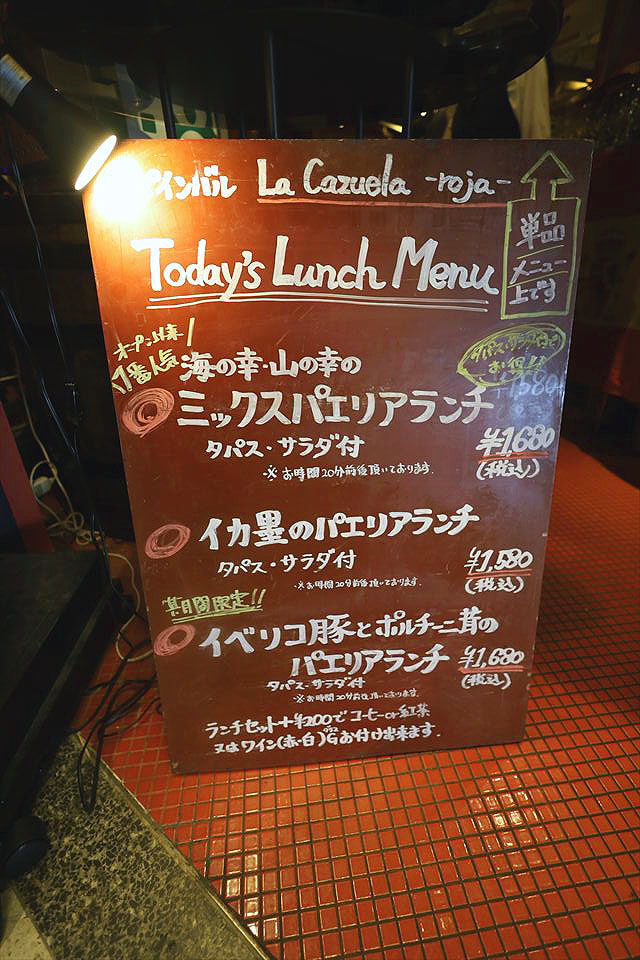 インバル La Cazuela -roja-
単品
メニュー
上です
Today's Lunch Menu
オープン以来
1番人気
海の幸・山の幸の
タパス・サラダ付で
お得!!
ミックスパエリアランチ
¥1,680
タパス・サラダ付
(税込)
※お時間20分前後頂いております。
イカ墨のパエリアランチ
タパス・サラダ付
¥1,580
(税込)
※お時間20分前後頂いております。
期間限定!!
イベリコ豚とポルチーニ茸の
パエリアランチ
¥1,680
タパス・サラダ付
(税込)
※お時間20分前後頂いております
ランチセット+¥200でコーヒーor紅茶
又はワイン(赤・白)グラスお付け出来ます。